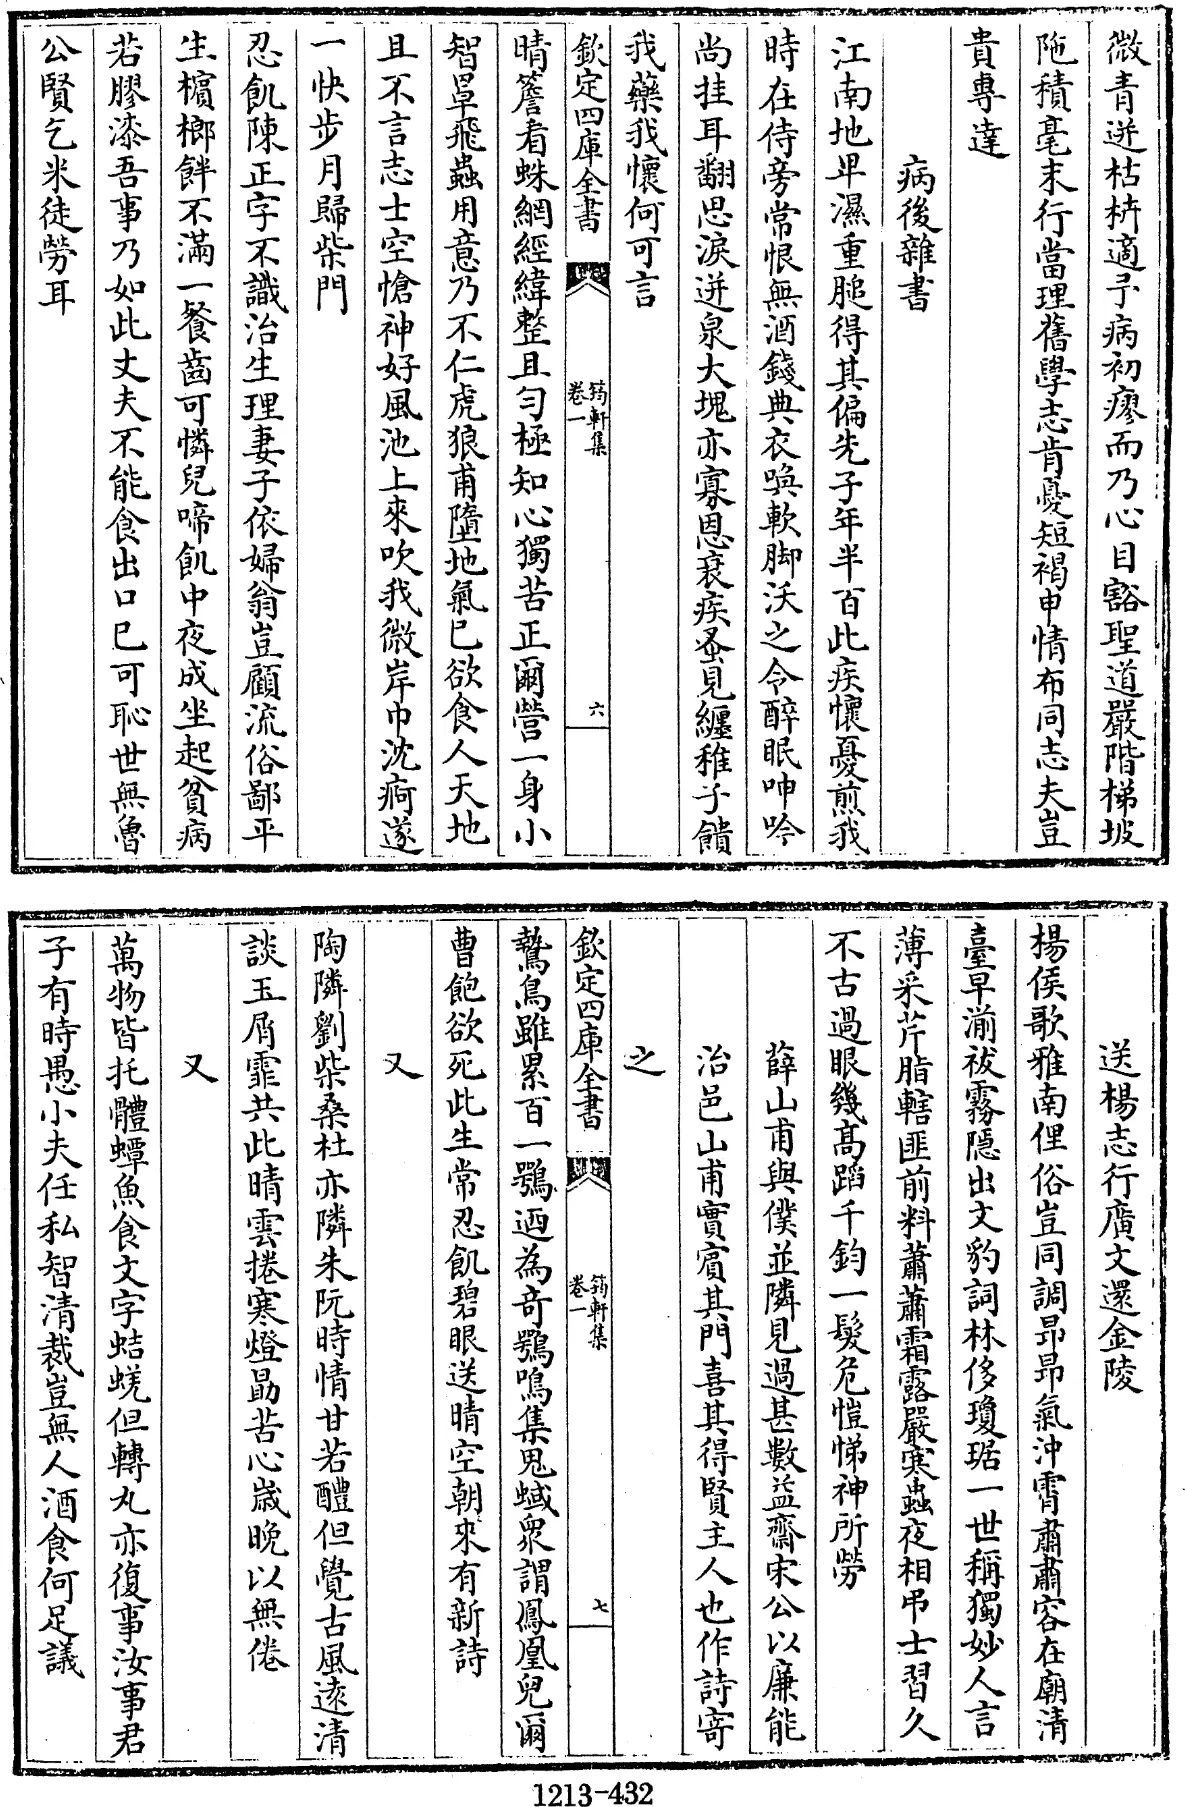 微青迸枯枿適予病初瘳而乃心目豁聖道嚴階梯坡
陁積毫末行當理舊學志肯憂短褐申情布同志夫豈
貴專達
病後雜書
江南地卑濕重膇得其偏先子年半百此疾懷憂煎我
時在侍旁常恨無酒錢典衣喚軟脚沃之令醉眠呻吟
尚挂耳翻思淚迸泉大塊亦寡恩衰疾蚤見纏稚子饋
我藥我懷何可言
欽定四庫全書
筠軒集
卷一
六
晴簷看蛛網經緯整且勻極知心獨苦正爾營一身小
智罩飛蟲用意乃不仁虎狼甫墮地氣已欲食人天地
且不言志士空愴神好風池上來吹我微岸巾沈痾遂
一快步月歸柴門
忍飢陳正字不識治生理妻子依婦翁豈顧流俗鄙平
生檳榔餅不滿一餐齒可憐兒啼飢中夜成坐起貧病
若膠漆吾事乃如此丈夫不能食出口已可恥世無魯
公賢乞米徒勞耳
送楊志行廣文還金陵
楊侯歌雅南俚俗豈同調昂昂氣沖霄肅肅容在廟清
臺早湔祓霧隱出文豹詞林侈瓊琚一世稱獨妙人言
薄采芹脂轄匪前料蕭蕭霜露嚴寒蟲夜相弔士習久
不古過眼幾高蹈千鈞一髮危愷悌神所勞
薛山甫與僕並隣見過甚數益齋宋公以廉能
治邑山甫實賓其門喜其得賢主人也作詩寄
之
欽定四庫全書
筠軒集
卷一
七
鷙鳥雖累百一鶚迺為奇鵶鳴集鬼蜮衆謂鳳凰兒爾
曹飽欲死此生常忍飢碧眼送晴空朝來有新詩
又
陶隣劉柴桑杜亦隣朱阮時情甘若醴但覺古風遠清
談玉屑霏共此晴雲捲寒燈勗苦心歲晚以無倦
又
萬物皆托體蟫魚食文字蛣蜣但轉丸亦復事汝事君
子有時愚小夫任私智清裁豈無人酒食何足議
1213-432